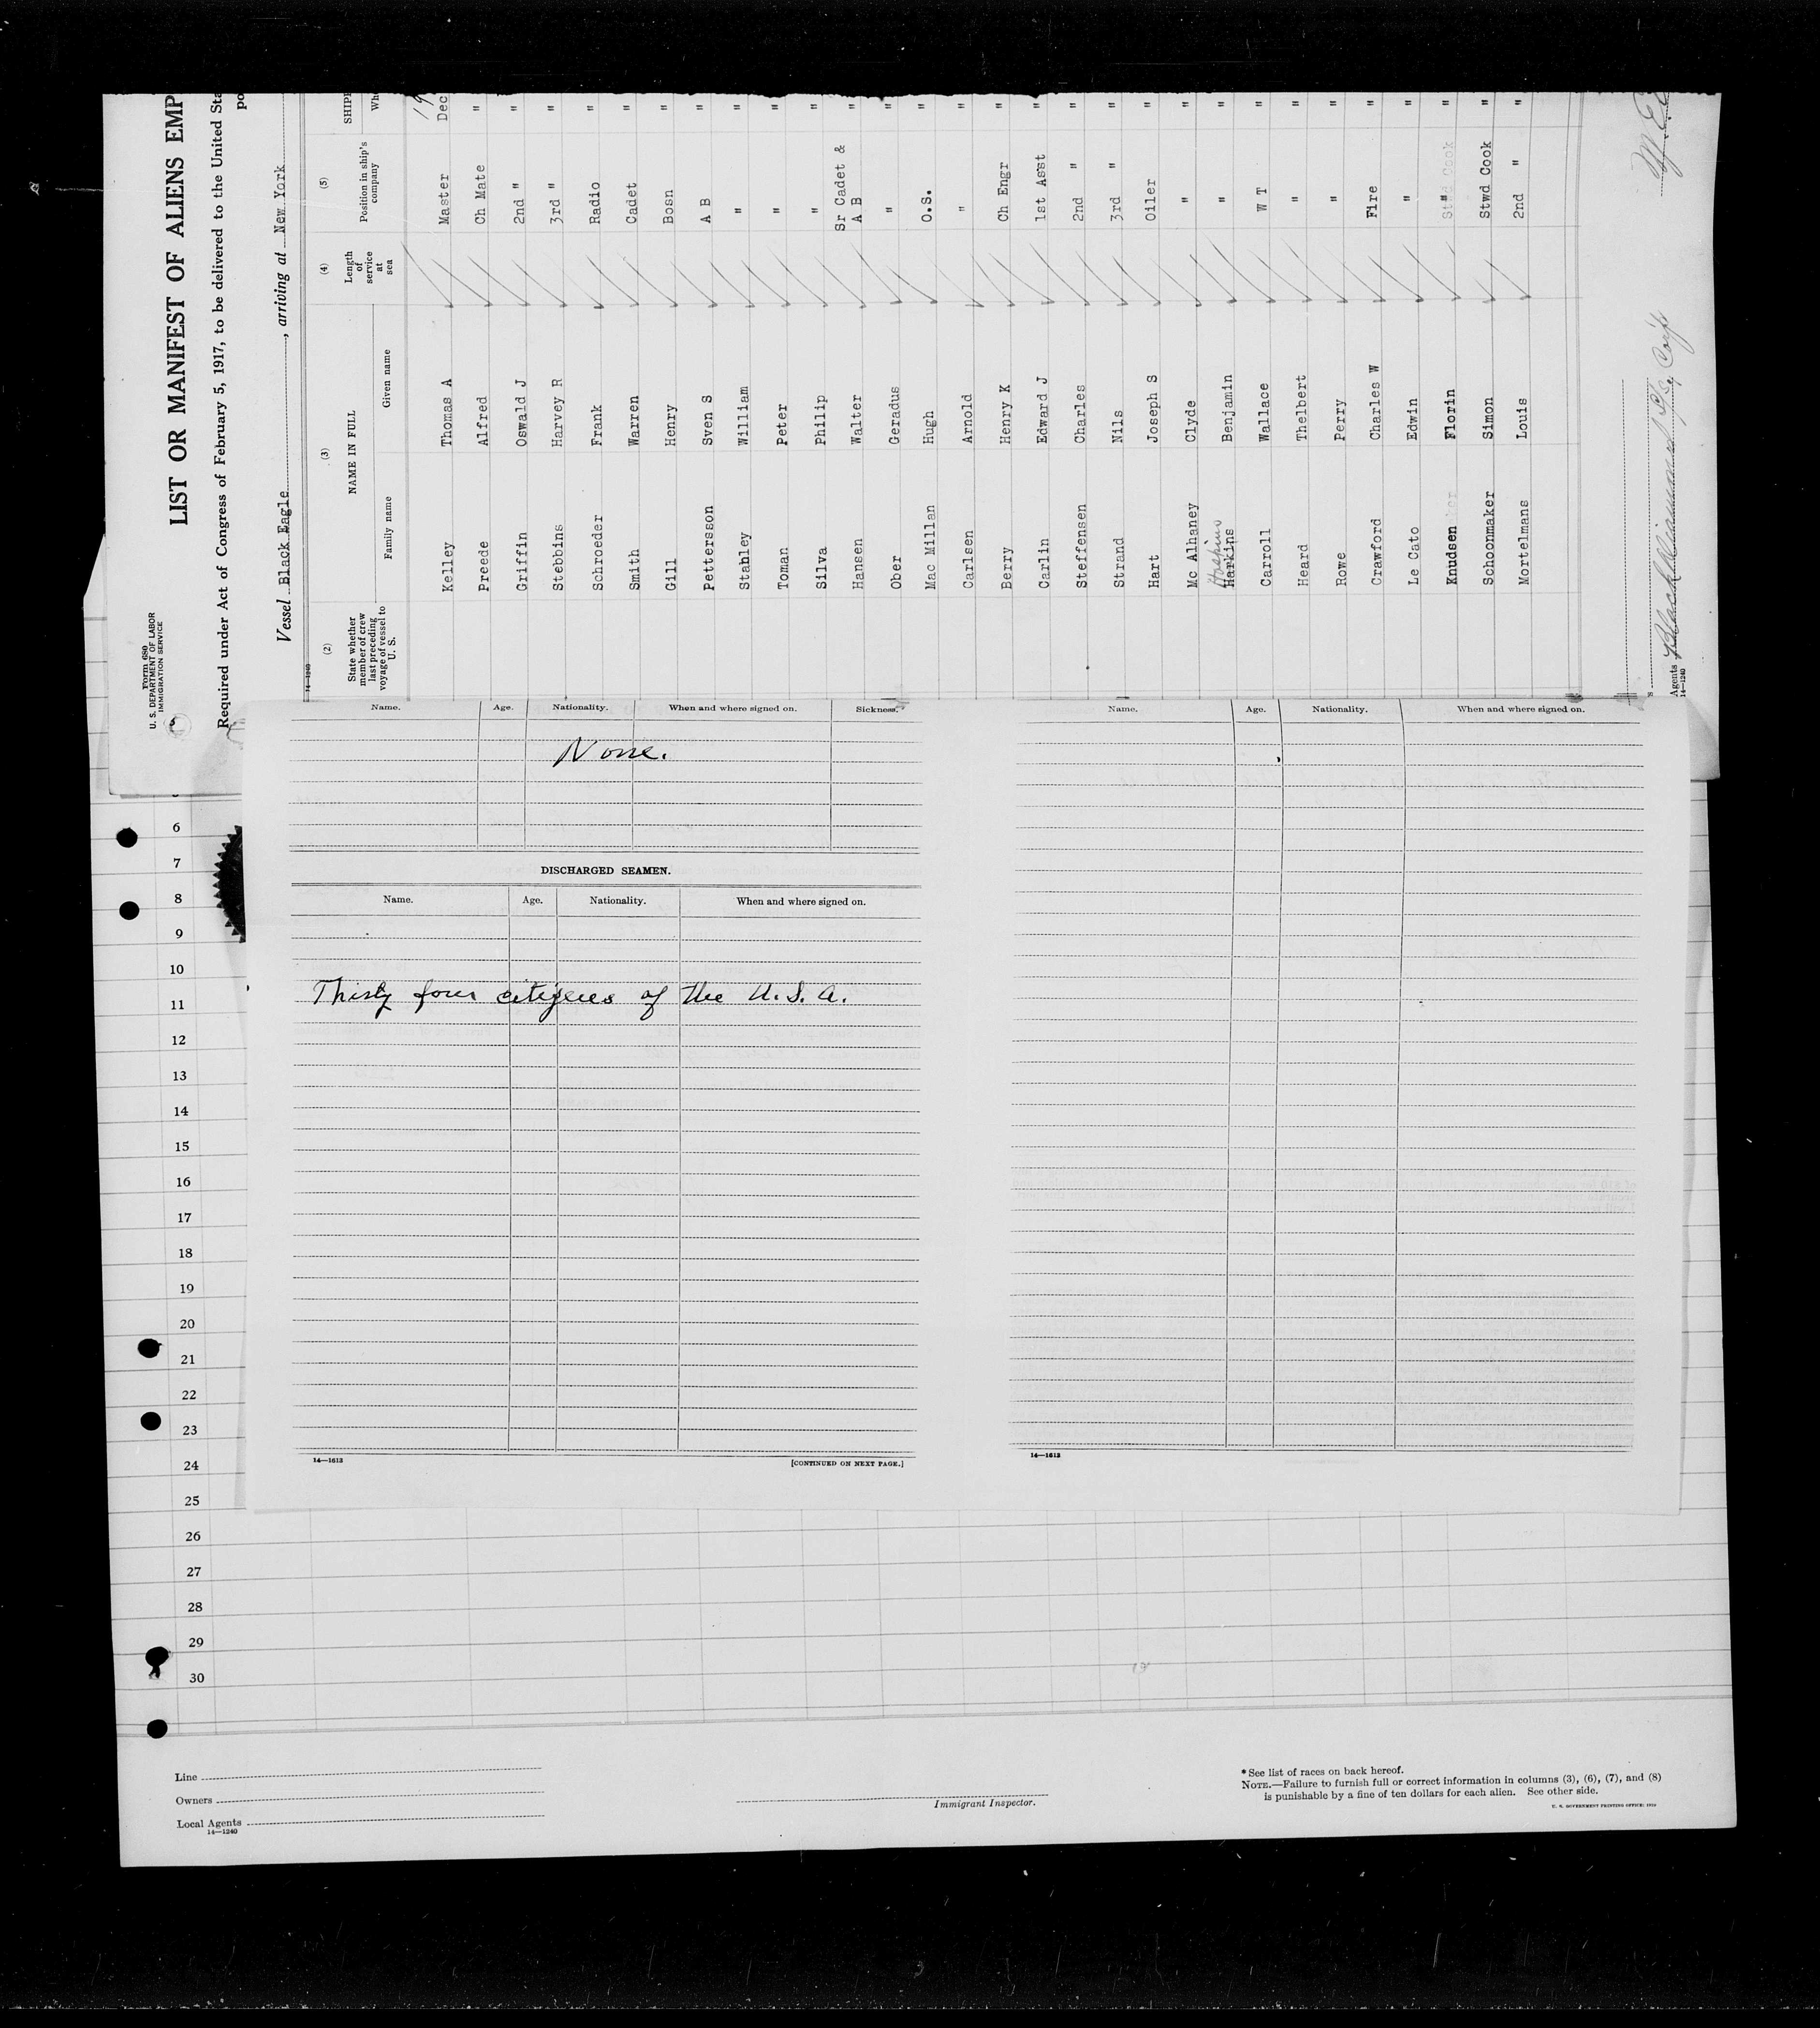 Form 680
U. S. DEPARTMENT OF LABOR
IMMIGRATION SERVICE
LIST OR MANIFEST OF ALIENS EMP
Required under Act of Congress of February 5, 1917, to be delivered to the United Sta
po
Vessel Black Eagle, arriving at New York
14—1240
(2) (3) (4) (5)
State whether member of crew last preceding voyage of vessel to U. S.
NAME IN FULL
Family name Given name
Length of service at sea
Position in ship's company
SHIPP
Whe
19
Kelley Thomas A Master Dec
Preede Alfred Ch Mate "
Griffin Oswald J 2nd " "
Stebbins Harvey R 3rd " "
Schroeder Frank Radio "
Smith Warren Cadet "
Gill Henry Bosn "
Pettersson Sven S A B "
Stabley William " "
Toman Peter " "
Silva Philip " "
Hansen Walter Sr Cadet & A B "
Ober Geradus " "
Mac Millan Hugh O.S. "
Carlsen Arnold " "
Berry Henry K Ch Engr "
Carlin Edward J 1st Asst "
Steffensen Charles 2nd " "
Strand Nils 3rd " "
Hart Joseph S Oiler "
Mc Alhaney Clyde " "
Harkins Benjamin " "
Carroll Wallace W T "
Heard Thelbert " "
Rowe Perry " "
Crawford Charles W Fire "
Le Cato Edwin " "
Knudsen Florin " "
Schoonmaker Simon Stwd Cook "
Mortelmans Louis 2nd " "
Agents Black Diamond S.S. Corp
14—1240
Name. Age. Nationality. When and where signed on. Sickness.
None.
DISCHARGED SEAMEN.
Name. Age. Nationality. When and where signed on.
Thirty four citizens of the U.S.A.
14—1613 [CONTINUED ON NEXT PAGE.]
Name. Age. Nationality. When and where signed on.
14—1613
6
7
8
9
10
11
12
13
14
15
16
17
18
19
20
21
22
23
24
25
26
27
28
29
30
Line
Owners
Local Agents
14—1240
Immigrant Inspector.
* See list of races on back hereof.
NOTE.—Failure to furnish full or correct information in columns (3), (6), (7), and (8)
is punishable by a fine of ten dollars for each alien. See other side.